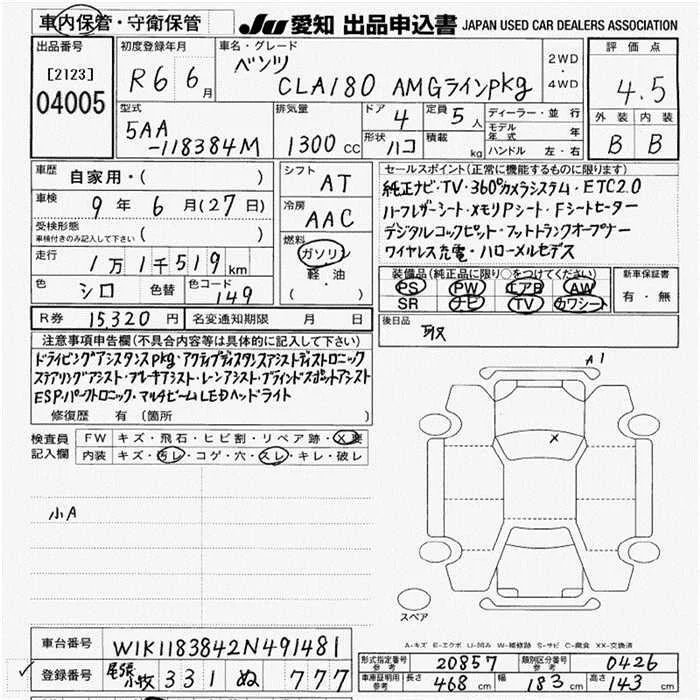 車内保管・守衛保管 JU 愛知 出品申込書 JAPAN USED CAR DEALERS ASSOCIATION
出品番号 [2123] 04005
初度登録年月 R6 6月
車名・グレード ベンツ CLA180 AMGラインpkg
2WD・4WD
評価点 4.5
外装 内装
B B
型式 5AA-118384M
排気量 1300 CC
ドア 4
形状 ハコ
定員 5人
積載 kg
ディーラー・並行
モデル年式 年
ハンドル 左・右
車歴 自家用・( )
車検 9年 6月(27日)
受検形態 車検付きのみ記入して下さい ( )
走行 1万1千519km
色 シロ 色替 色コード 149
シフト AT
冷房 AAC
燃料 ガソリン 軽油 ( )
セールスポイント(正常に機能するものに限ります)
純正ナビ・TV・360°カメラシステム・ETC2.0
ハーフレザーシート・メモリPシート・Fシートヒーター
デジタルコックピット・フットトランクオープナー
ワイヤレス充電・ハローメルセデス
装備品(純正品に限り○をつけてください)
PS PW エアB AW
SR ナビ TV カワシート
新車保証書 有・無
R券 15,320円 名変通知期限 月 日
後日品 取
注意事項申告欄(不具合内容等は具体的に記入して下さい)
ドライビングアシスタンスpkg・アクティブディスタンスアシストディストロニック
ステアリングアシスト・ブレーキアシスト・レーンアシスト・ブラインドスポットアシスト
ESP・パークトロニック・マルチビームLEDヘッドライト
修復歴 有(箇所 )
検査員記入欄
FW キズ・飛石・ヒビ割・リペア跡・X要
内装 キズ・汚レ・コゲ・穴・スレ・キレ・破レ
小A
A1
X
スペア
A-キズ E-エクボ U-凹み W-補修跡 S-サビ C-腐食 XX-交換済
車台番号 W1K1183842N491481
登録番号 尾張小牧 331 ぬ 777
形式指定番号 参考 20857 類別区分番号 参考 0426
車庫証明用 参考 長さ 468cm 幅 183cm 高さ 143cm